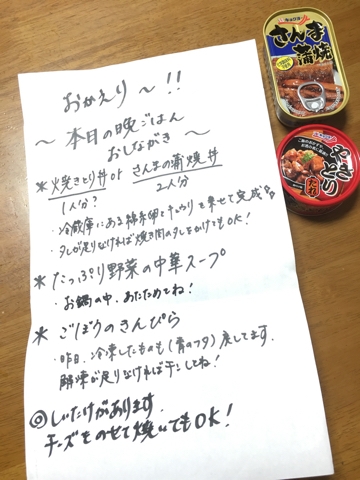 おかえり〜!!
〜本日の晩ごはん
おしながき〜
*焼きとり丼 or さんまの蒲焼丼
1人分? 2人分
・冷蔵庫にある錦糸卵とキュウリを乗せて完成
・タレが足りなければ焼き肉のタレをかけてもOK!
*たっぷり野菜の中華スープ
・お鍋の中、あたためてね!
*ごぼうのきんぴら
・昨日、冷凍したものも(青のフタ)戻してます。
解凍が足りなければチンしてね!
◎しいたけがあります。
チーズをのせて焼いてもOK!
キョクヨー
さんま
蒲焼
キョクヨー
やきとり
たれ